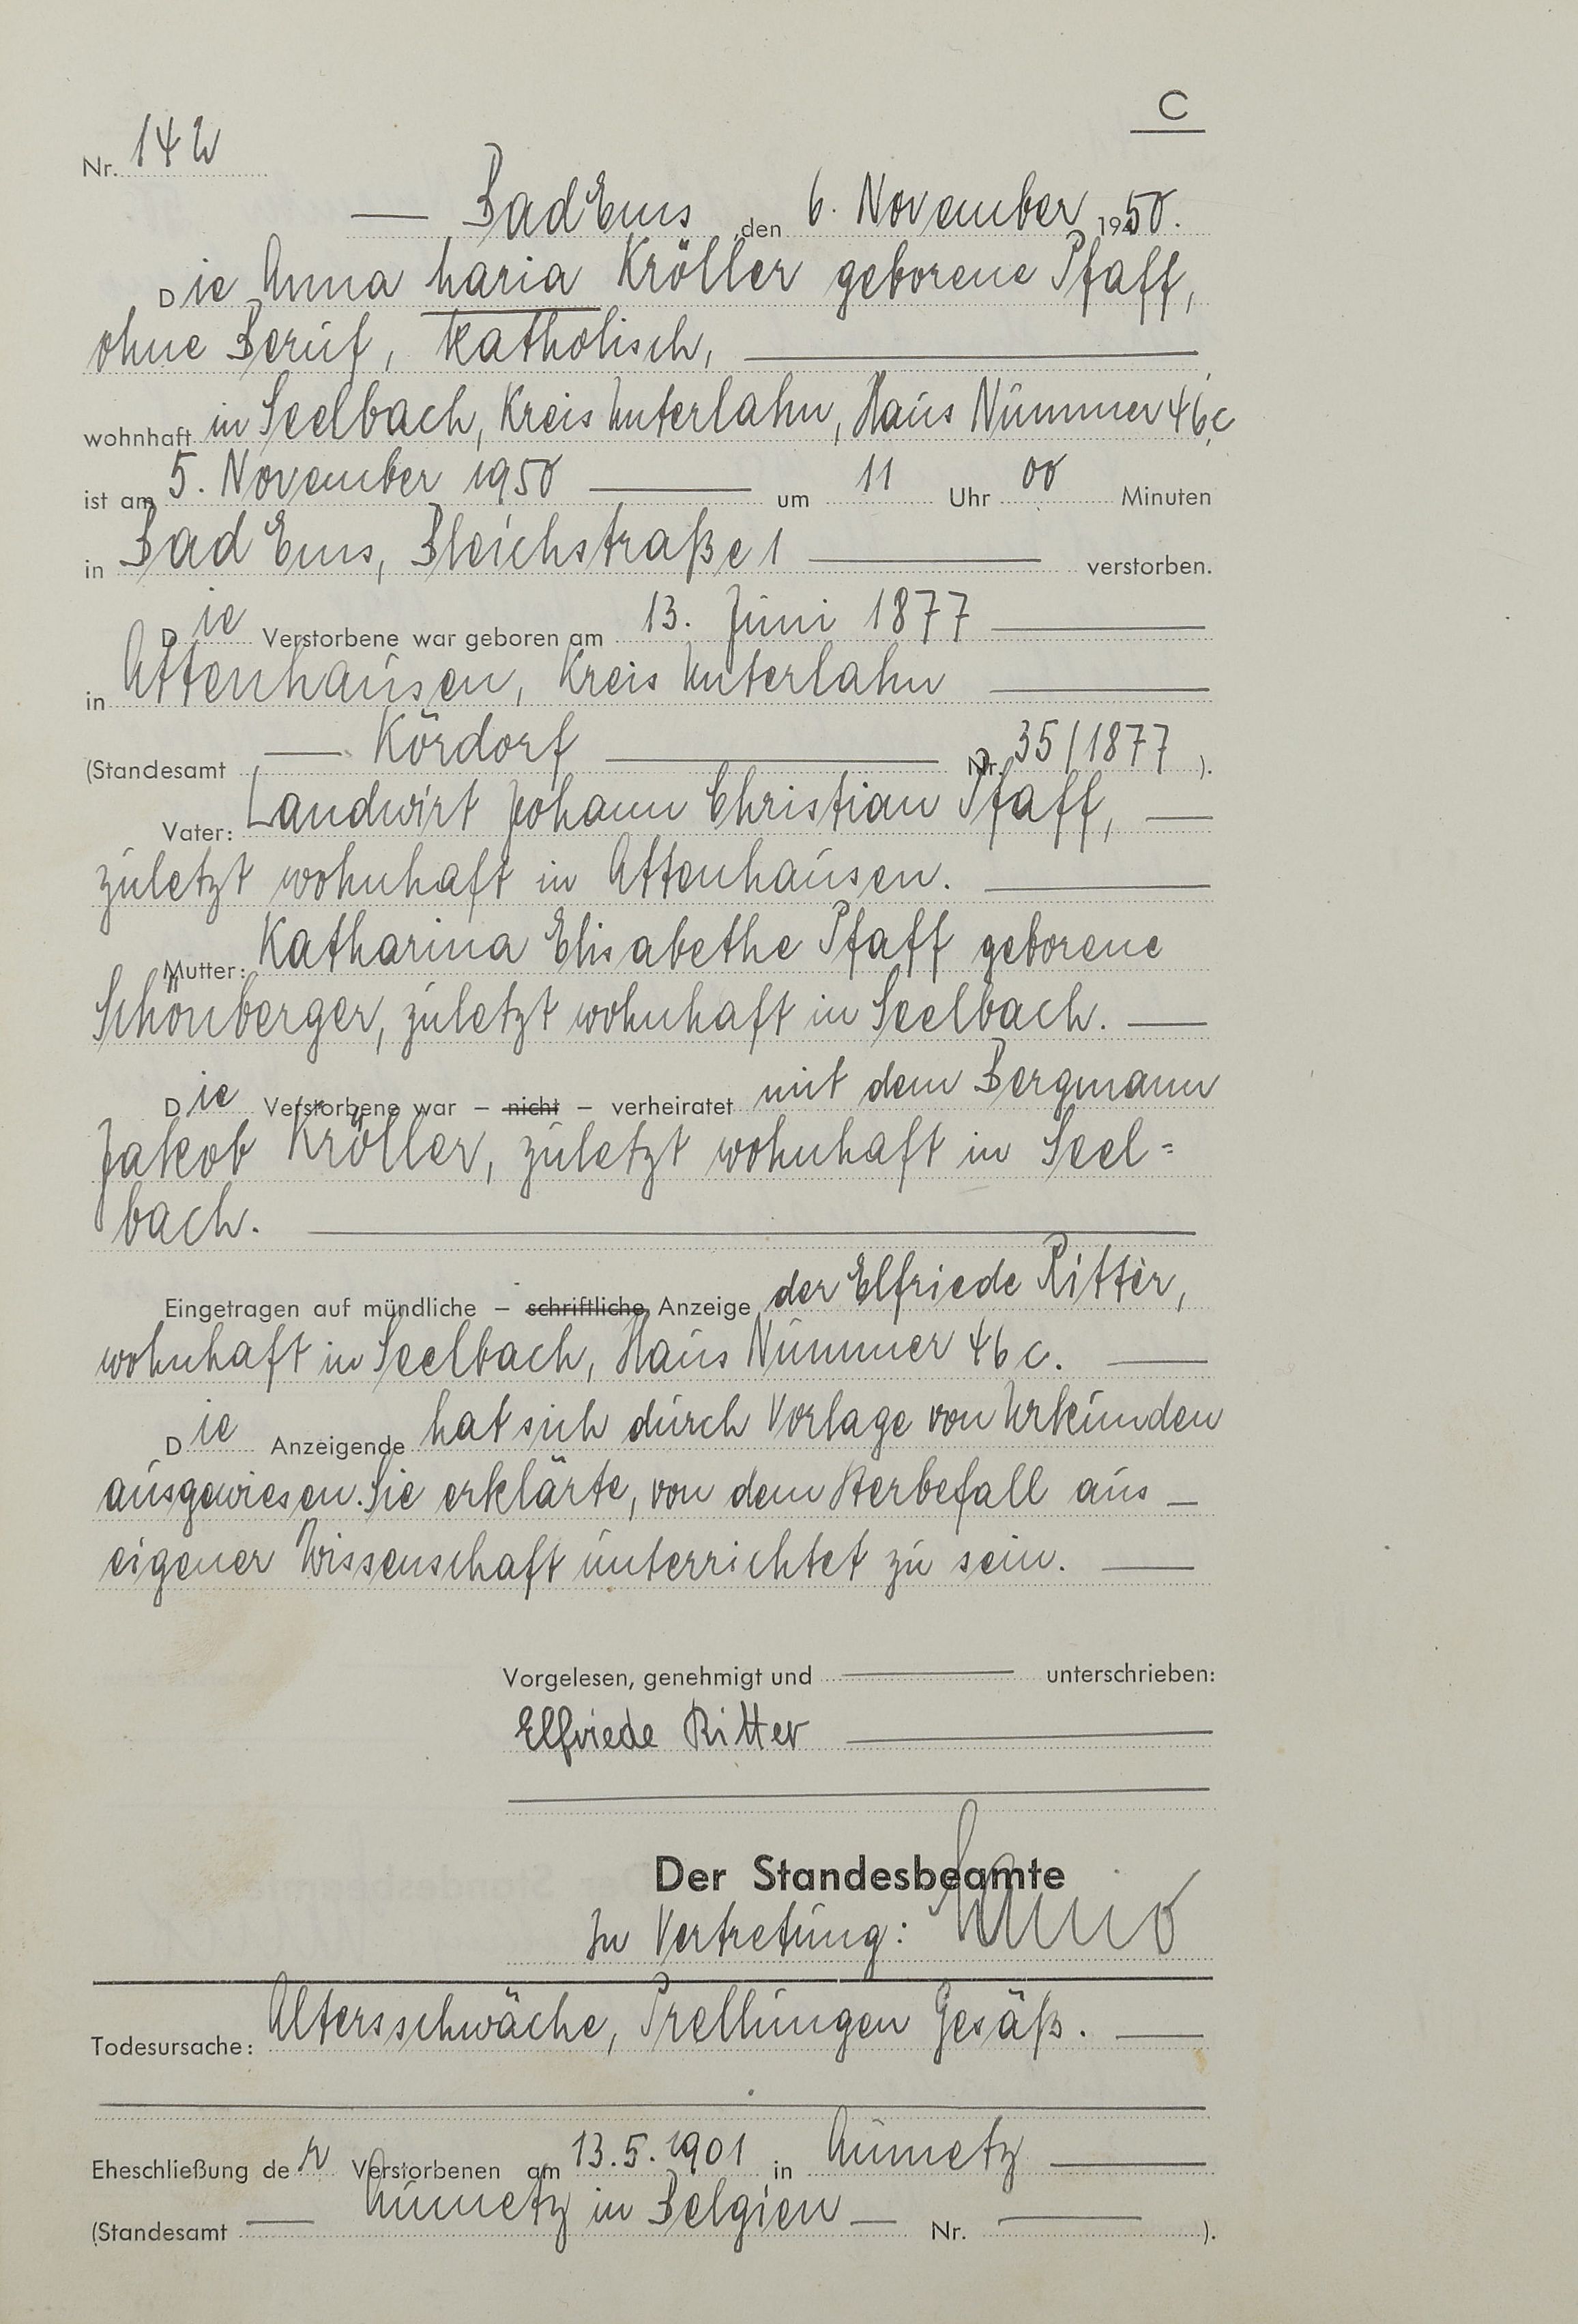 C
Nr. 142
Bad Ems, den 6. November 1950.
Die Anna Maria Kröller geborene Pfaff,
ohne Beruf, katholisch,
wohnhaft in Seelbach, Kreis Unterlahn, Haus Nummer 46c,
ist am 5. November 1950 um 11 Uhr 00 Minuten
in Bad Ems, Bleichstraße 1 verstorben.
Die Verstorbene war geboren am 13. Juni 1877
in Attenhausen, Kreis Unterlahn
(Standesamt Kördorf Nr. 35/1877 ).
Vater: Landwirt Johann Christian Pfaff,
zuletzt wohnhaft in Attenhausen.
Mutter: Katharina Elisabethe Pfaff geborene
Schönberger, zuletzt wohnhaft in Seelbach.
Die Verstorbene war – nicht – verheiratet mit dem Bergmann
Jakob Kröller, zuletzt wohnhaft in Seel=
bach.
Eingetragen auf mündliche – schriftliche Anzeige der Elfriede Ritter,
wohnhaft in Seelbach, Haus Nummer 46c.
Die Anzeigende hat sich durch Vorlage von Urkunden
ausgewiesen. Sie erklärte, von dem Sterbefall aus
eigener Wissenschaft unterrichtet zu sein.
Vorgelesen, genehmigt und unterschrieben:
Elfriede Ritter
Der Standesbeamte
In Vertretung:
Todesursache: Altersschwäche, Prellungen Gesäß.
Eheschließung der Verstorbenen am 13.5.1901 in Aumetz
(Standesamt Aumetz in Belgien Nr. ).